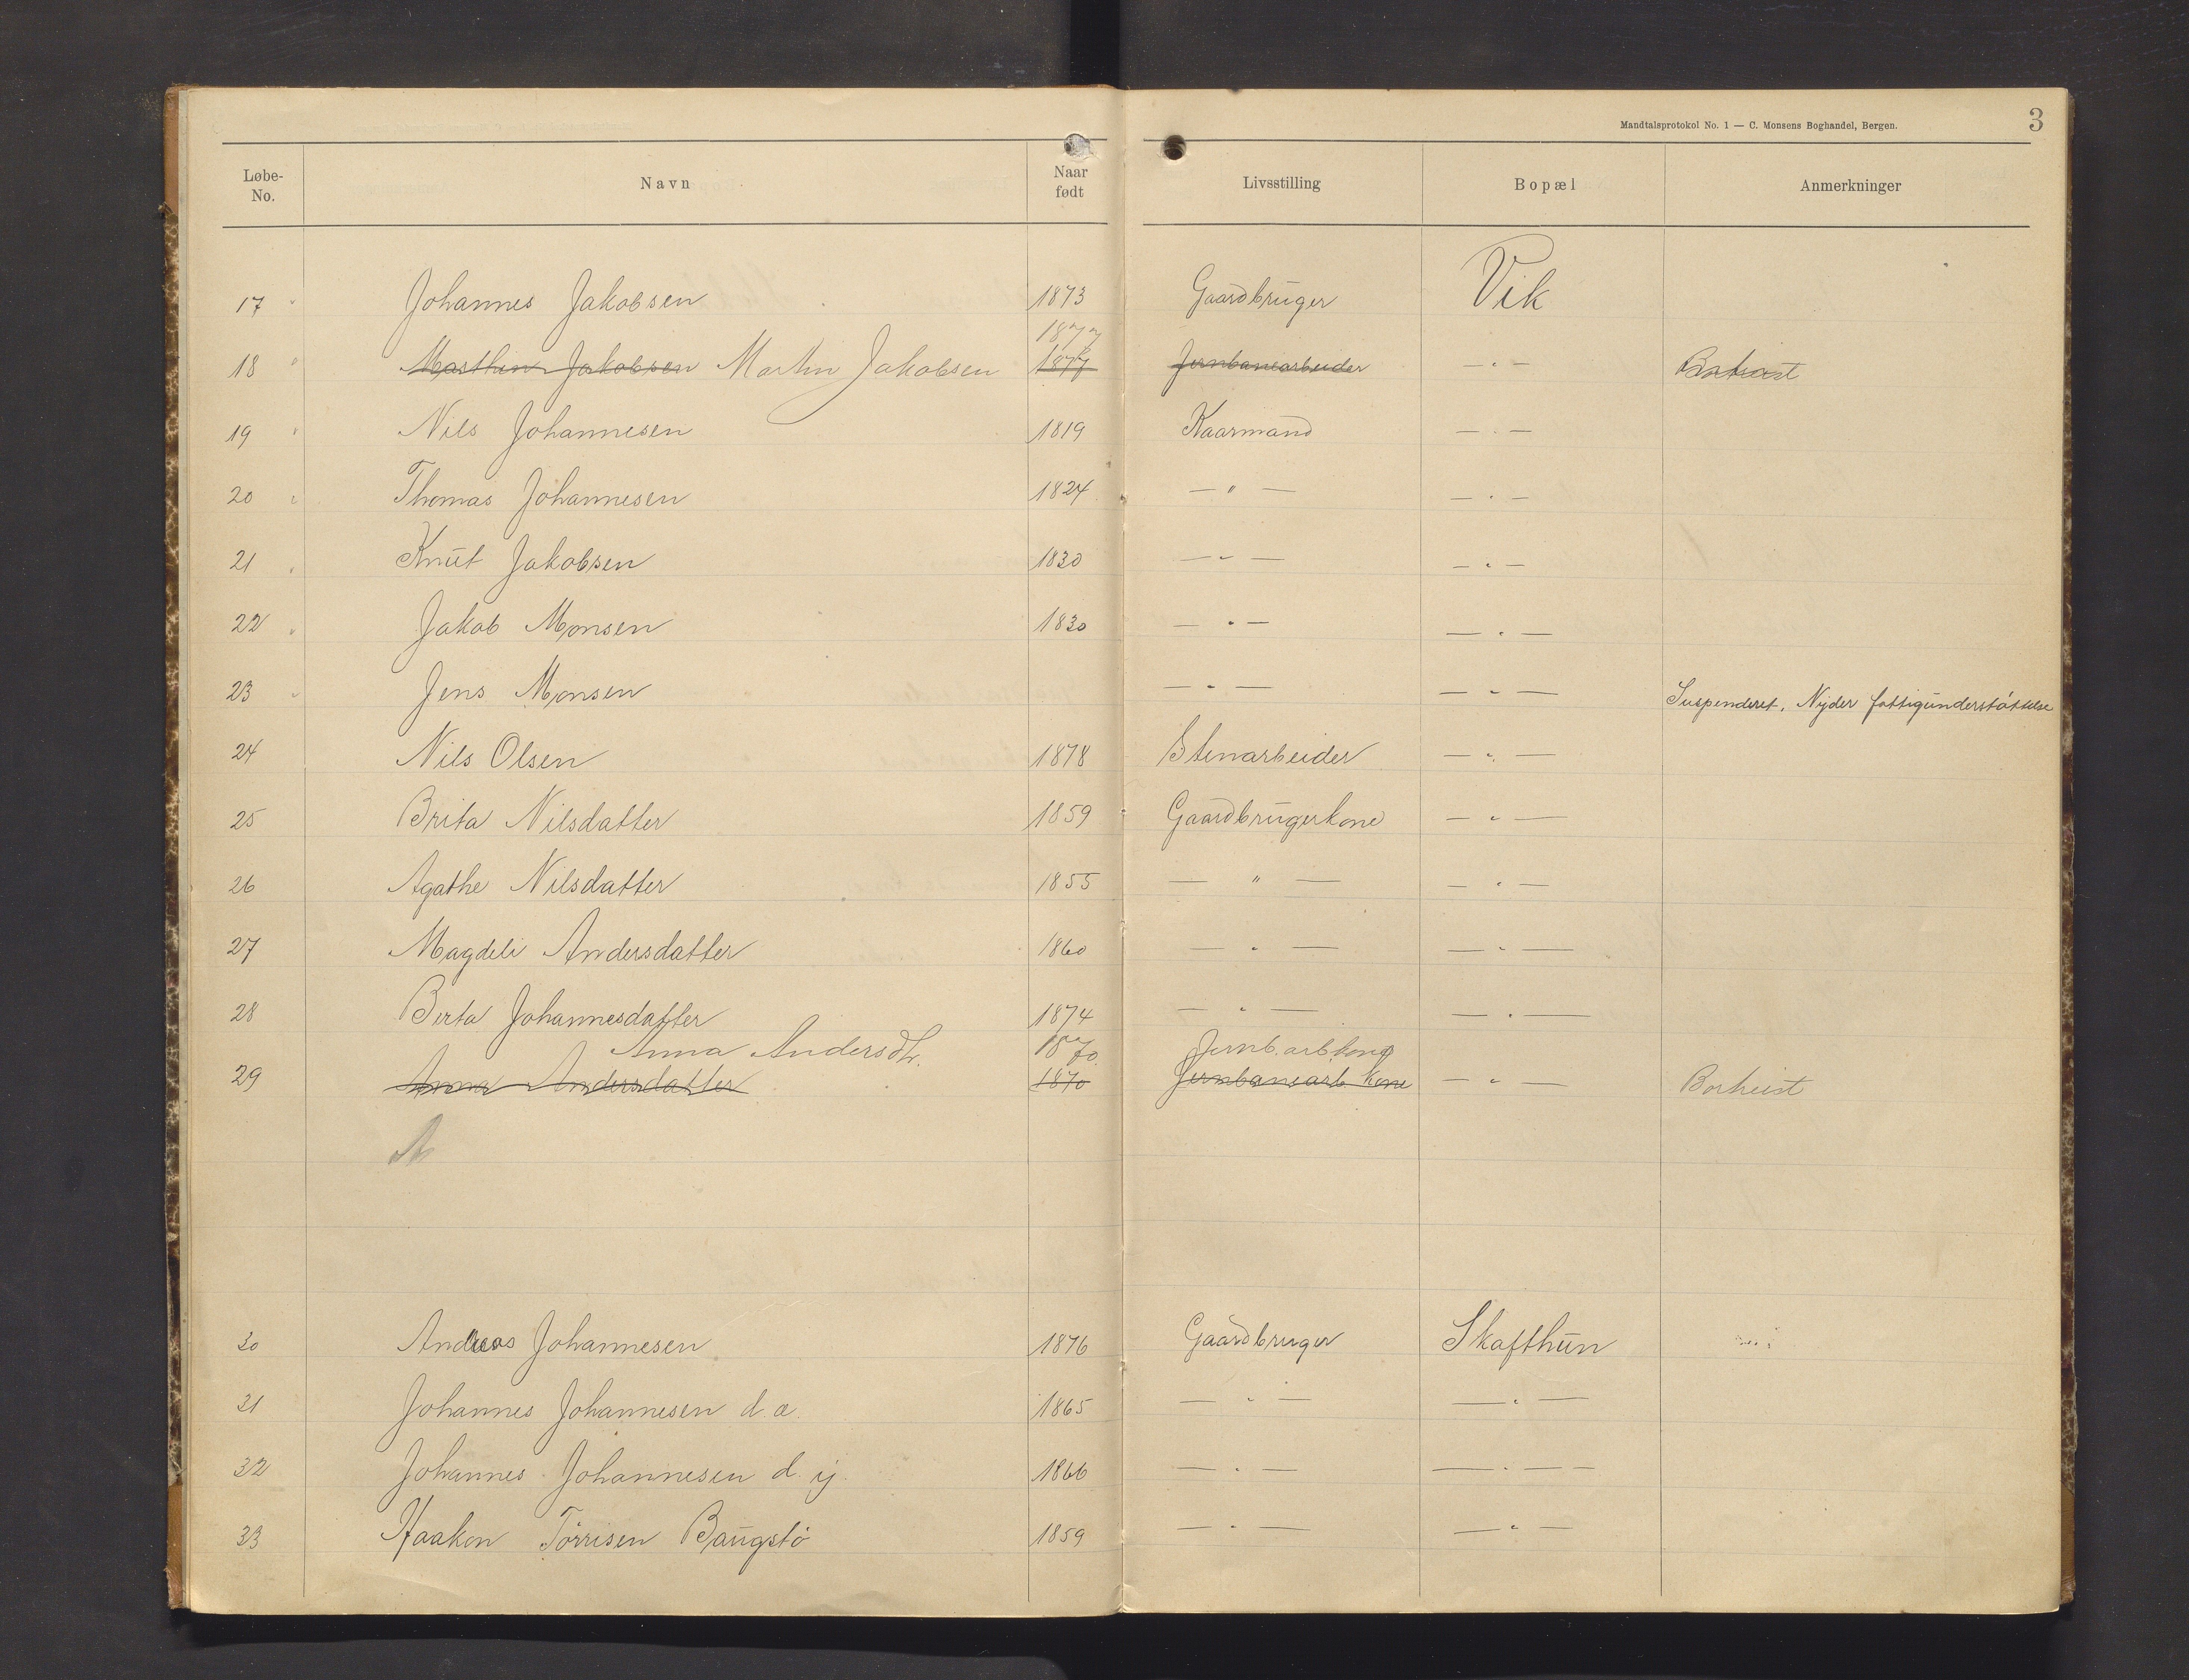 Mandtalsprotokol No. 1 — C. Monsens Boghandel, Bergen. 3
Løbe-No. Navn Naar født Livsstilling Bopæl Anmerkninger
17 " Johannes Jakobsen 1873 Gaardbruger Vik
1877
18 " Marthin Jakobsen Martin Jakobsen 1877 Jernbanearbeider — " —
19 " Nils Johannesen 1819 Kaarmand — " —
20 " Thomas Johannesen 1824 — " — — " —
21 " Knut Jakobsen 1830 — " — — " —
22 " Jakob Monsen 1830 — " — — " —
23 " Jens Monsen — " — — " — Suspenderet. Nyder fattigunderstøttelse
24 Nils Olsen 1878 Stenarbeider — " —
25 Brita Nilsdatter 1859 Gaardbrugerkone — " —
26 Agathe Nilsdatter 1855 — " — — " —
27 Magdeli Andersdatter 1860 — " — — " —
28 Berta Johannesdatter 1874 — " — — " —
Anna Andersdtr. 1870 Jernb.arb.kone
29 Anna Andersdatter 1870 Jernbanearb. kone — " — Bortreist
A
30 Andreas Johannesen 1876 Gaardbruger Skafthun
31 Johannes Johannesen d.æ. 1865 — " — — " —
32 Johannes Johannesen d. y. 1866 — " — — " —
33 Haakon Törrisen Baugstö 1859 — " — — " —